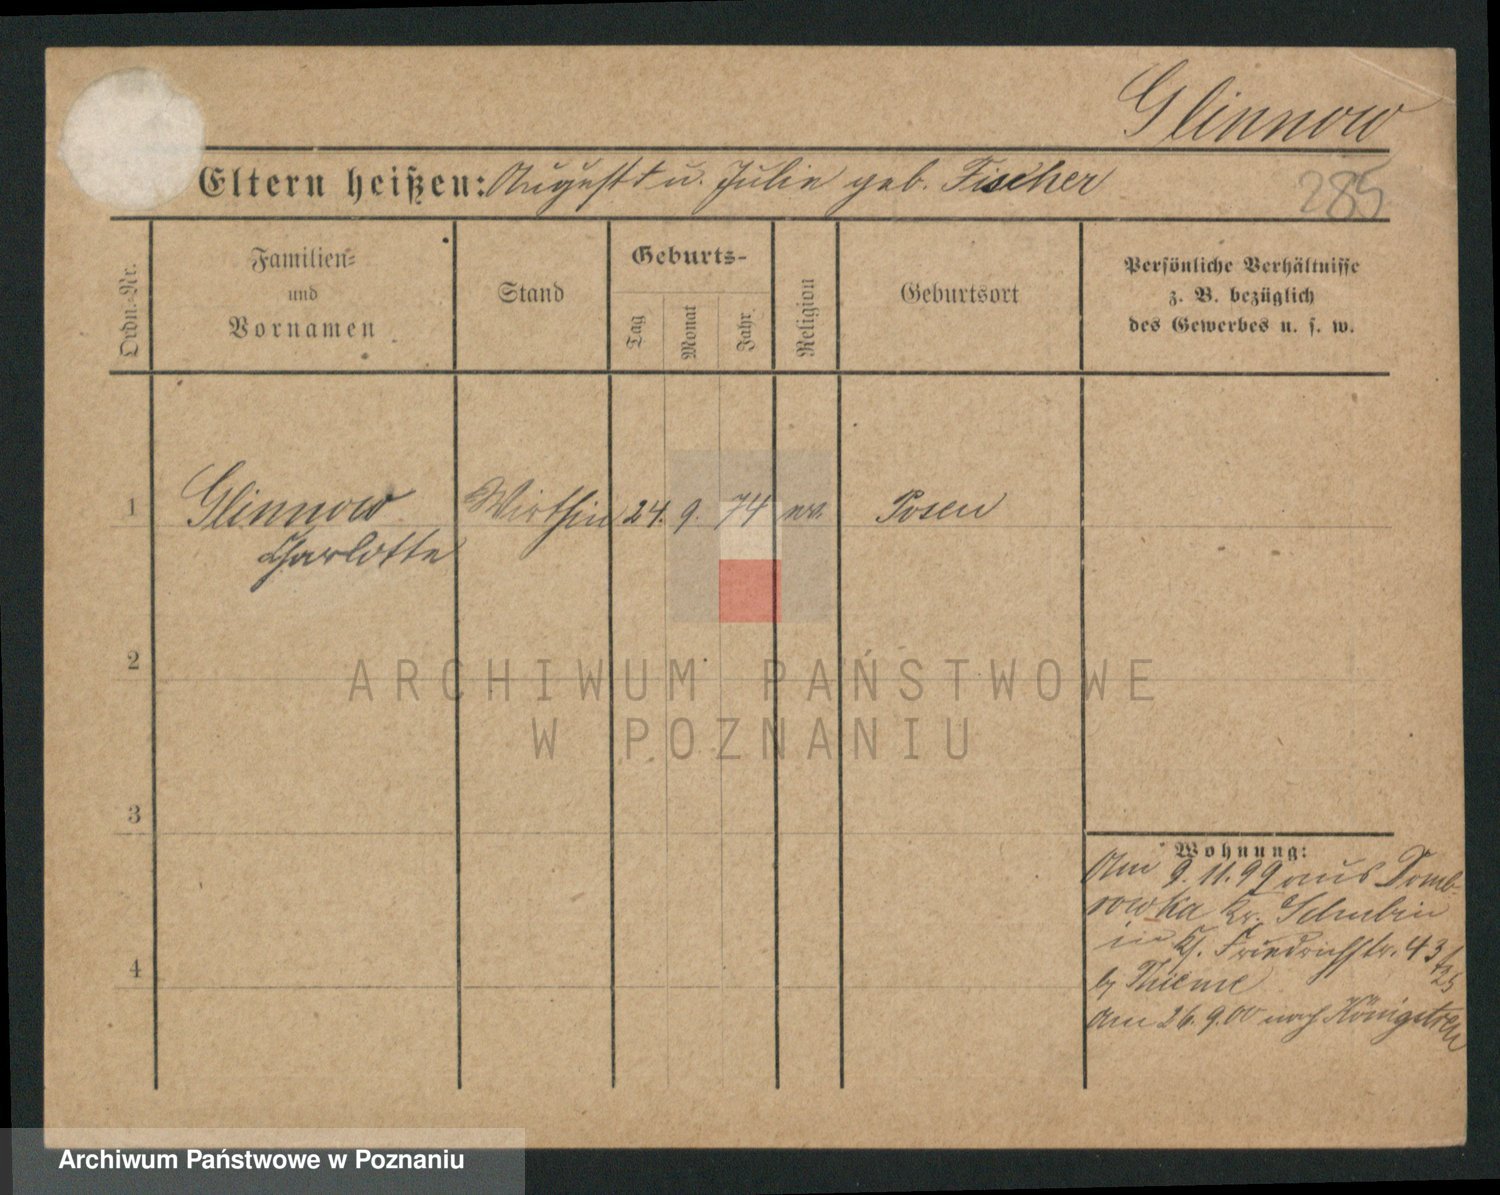 Glinnow
Eltern heißen: August † u. Julie geb. Fischer
285
Ordn.-Nr.
Familien-
und
Vornamen
Stand
Geburts-
Tag
Monat
Jahr
Religion
Geburtsort
Persönliche Verhältnisse
z. B. bezüglich
des Gewerbes u. s. w.
1 Glinnow Wirthin 24. 9. 74 ev. Posen
Charlotte
2
ARCHIWUM PAŃSTWOWE
W POZNANIU
3
Wohnung:
Am 9.11.99 aus Domb-
rowka Kr. Schubin
in Friedrichstr. 43
b/ Thieme
4
Am 26.9.00 nach Königstreu
Archiwum Państwowe w Poznaniu